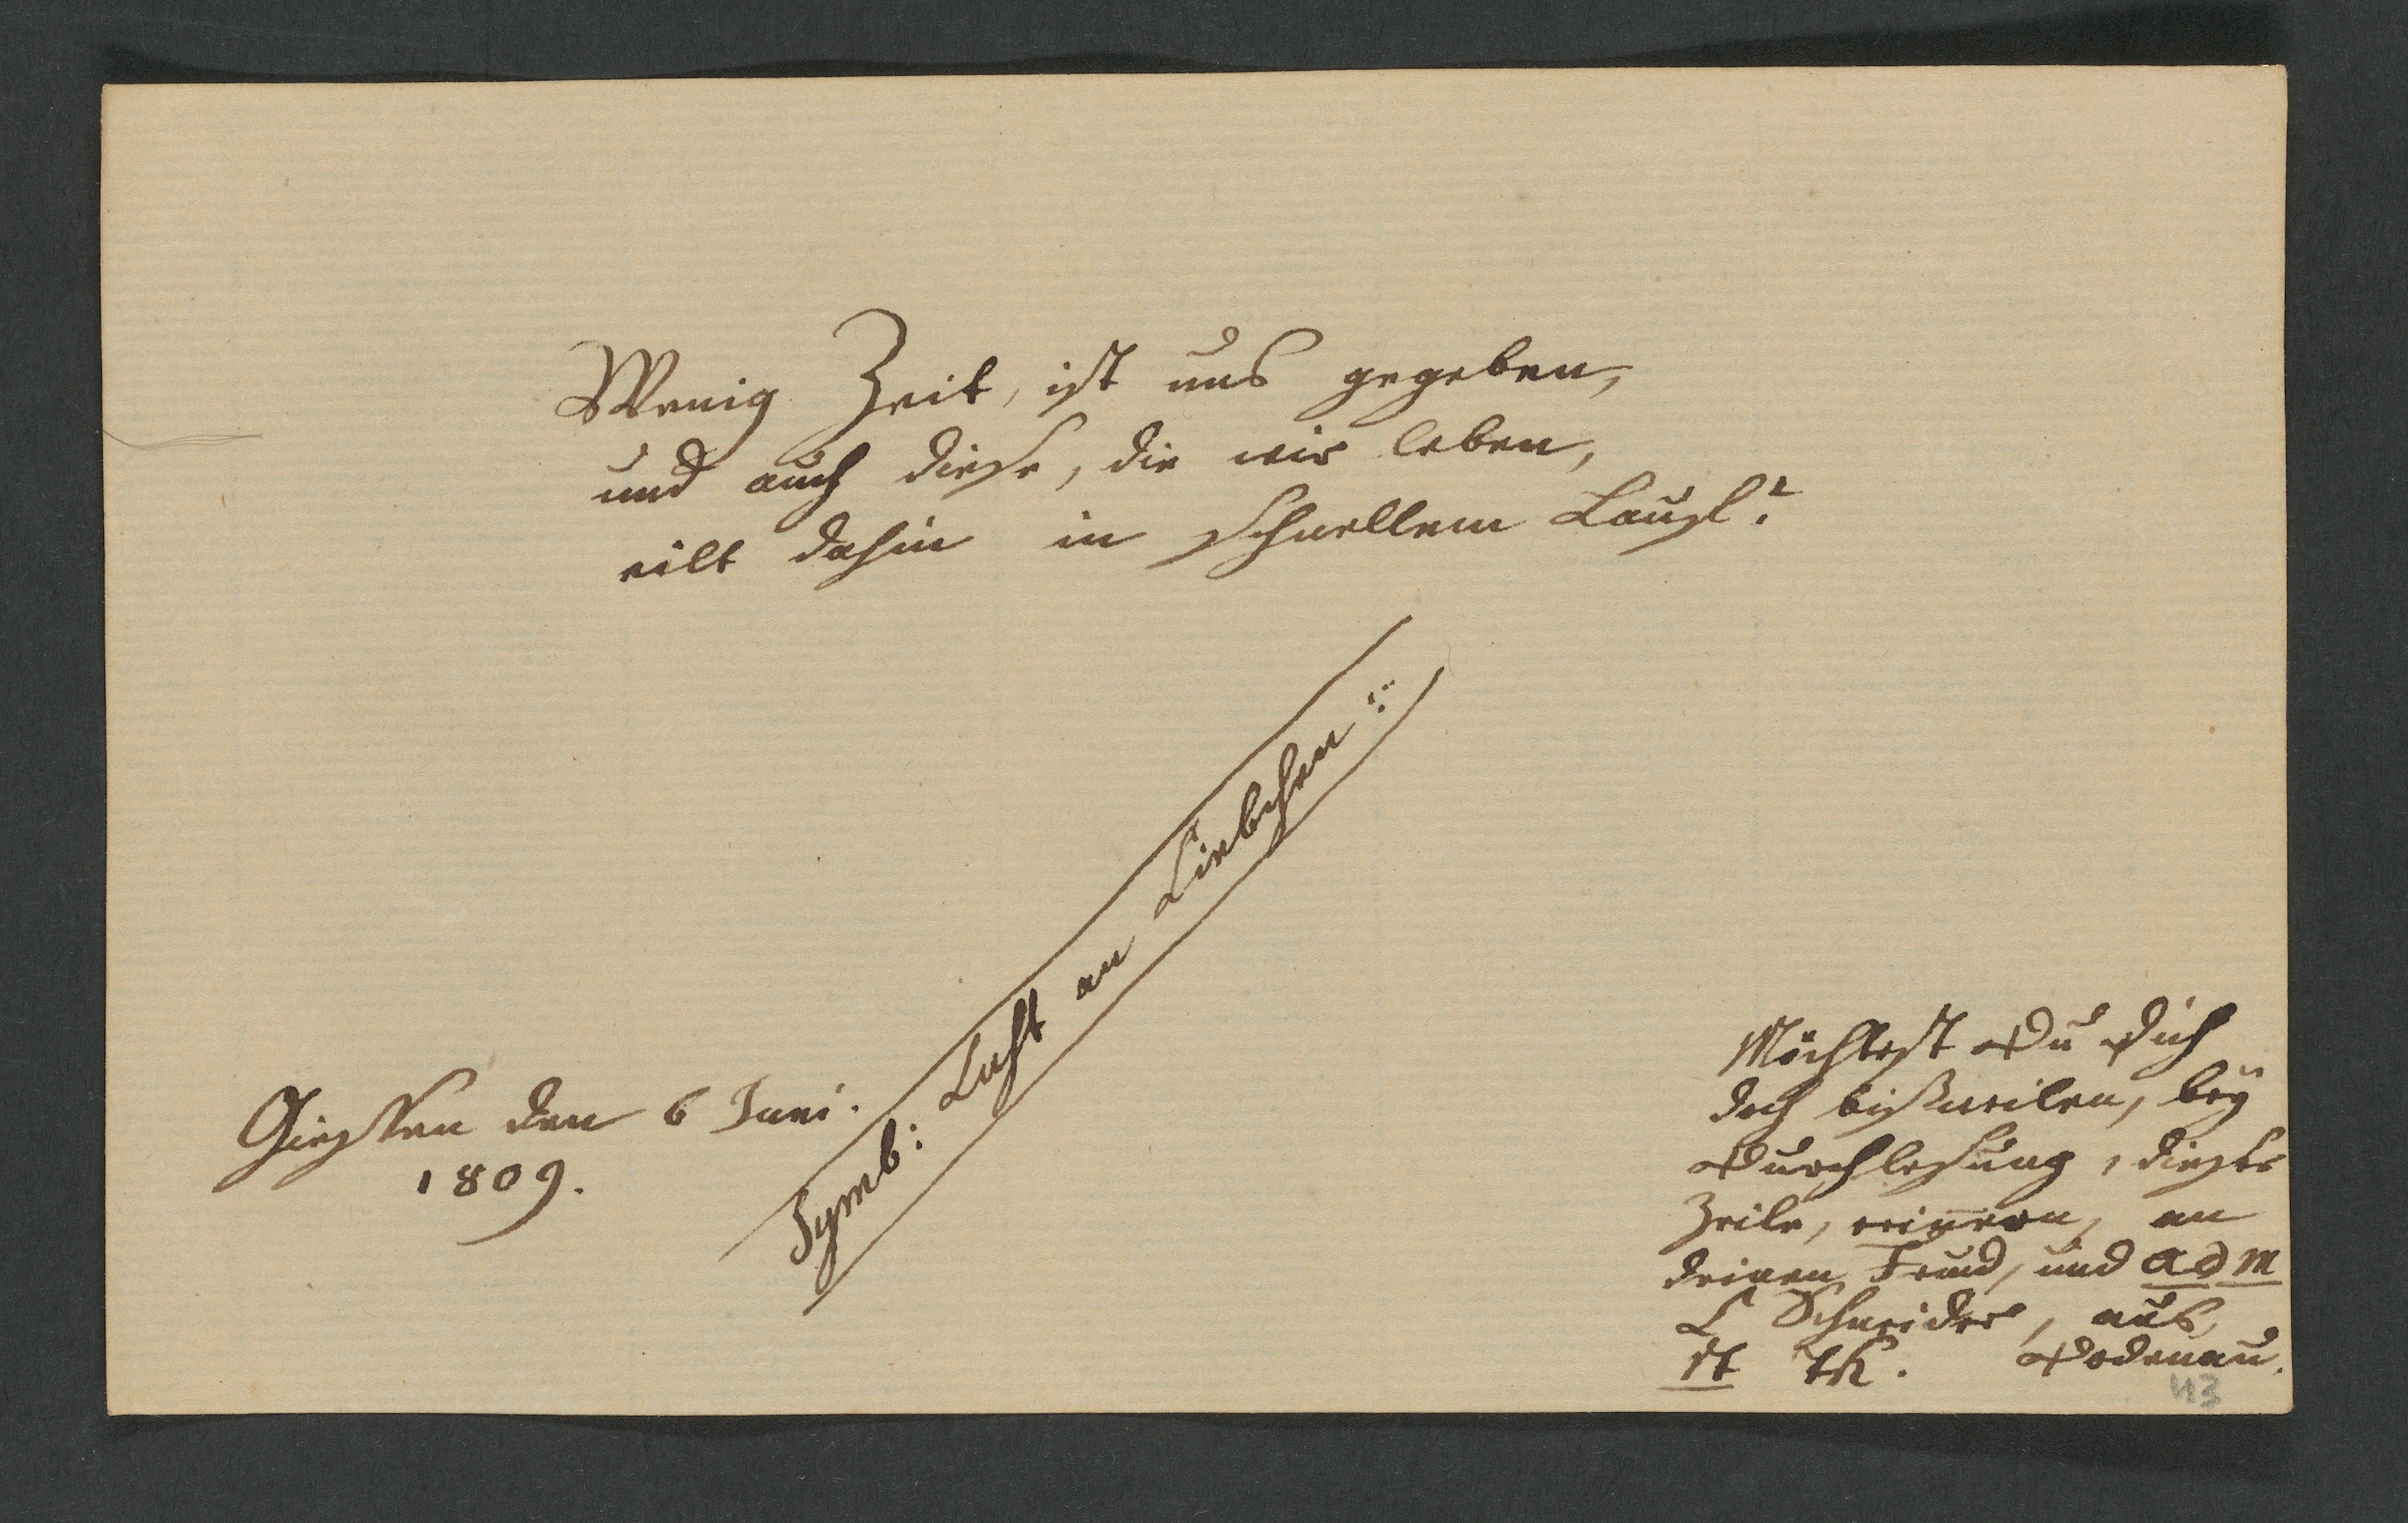 Wenig Zeit, ist uns gegeben,
und auch diese, die wir leben,
eilt dahin in schnellem Lauf!
Symb: Luft an Liebchen
Giessen den 6 Juni.
1809.
Möchtest Du Dich
doch bißweilen, bey
Durchlesung, dieser
Zeile, erinern, an
deinen Freund, und adm
L Schneider, aus
st th. Dodenau.
43